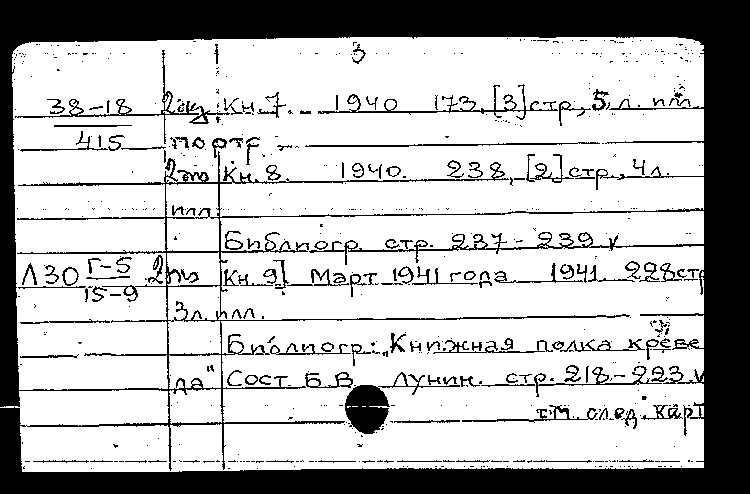 3
38-18 2экз Кн. 7. 1940 173, [3] стр., 5 л. илл.
415 портр.
2 Кн. 8. 1940. 238, [2] стр., 4 л.
илл.
Библиогр. стр. 237-239 v
Л30 Г-5 2 [Кн. 9] Март 1941 года 1941. 228 стр
15-9
3 л. илл.
Библиогр: „Книжная полка краеве
да" Сост Б В Лунин. стр. 218-223 v
см. след. карт